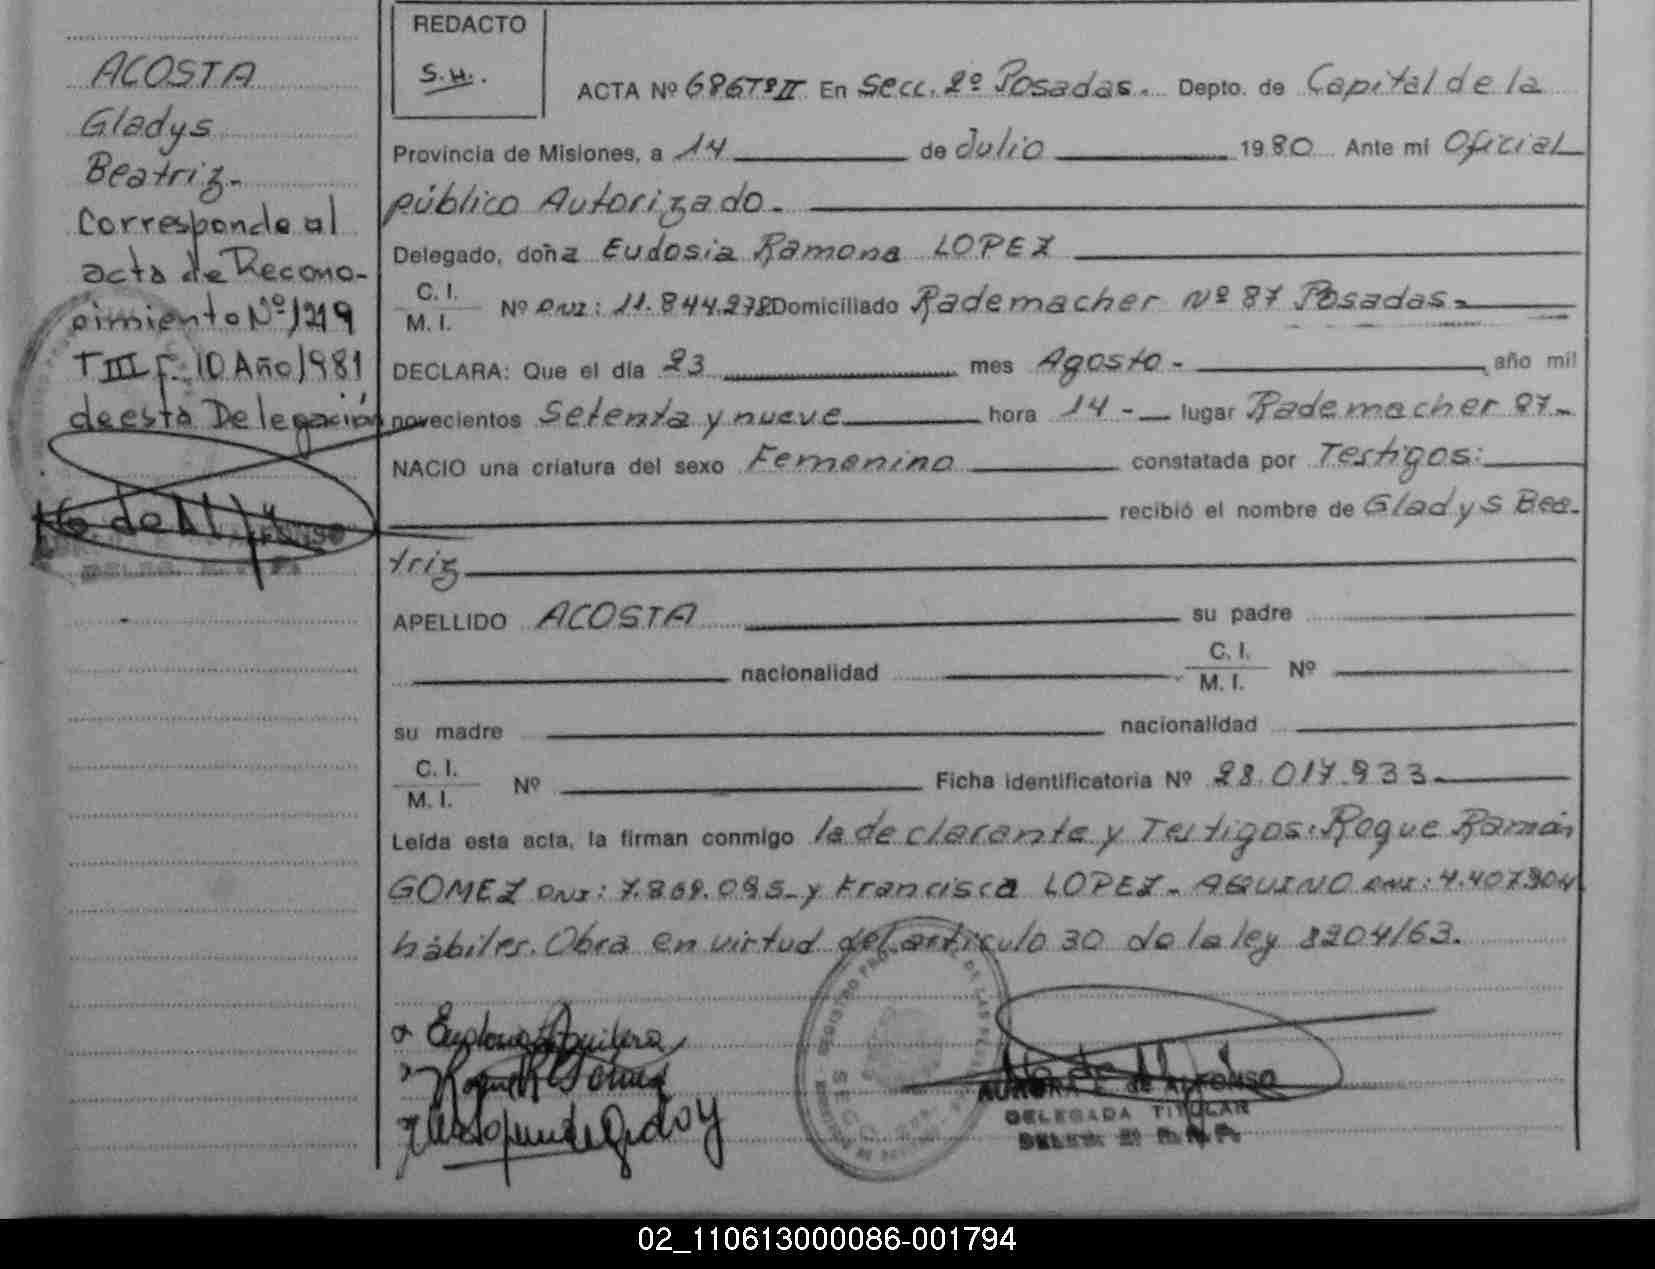 ACOSTA
Gladys
Beatriz-
Corresponde al
acta de Recono-
cimiento Nº 1219
T III F. 10 Año 1981
de esta Delegación
REDACTO
S.H.
ACTA Nº 686TºII En Secc. 2º Posadas. Depto. de Capital de la
Provincia de Misiones, a 14 de Julio 1980 Ante mi Oficial
público Autorizado.
Delegado, doña Eudosia Ramona LOPEZ
C. I.
M. I. Nº DNI: 11.844.278 Domiciliado Rademacher Nº 87 Posadas-
DECLARA: Que el día 23 mes Agosto- año mil
novecientos Setenta y nueve hora 14- lugar Rademacher 87-
NACIO una criatura del sexo Femenino constatada por Testigos:
recibió el nombre de Gladys Bea-
triz
APELLIDO ACOSTA su padre
nacionalidad C. I.
M. I. Nº
su madre nacionalidad
C. I.
M. I. Nº Ficha identificatoria Nº 28.017.933
Leída esta acta, la firman conmigo la declarante y Testigos: Roque Ramón
GOMEZ DNI: 7.869.095- y Francisca LOPEZ- AQUINO DNI: 4.407.904
hábiles. Obra en virtud del artículo 30 de la ley 8204/63.
AURORA E. de ALFONSO
DELEGADA TITULAR
02_110613000086-001794